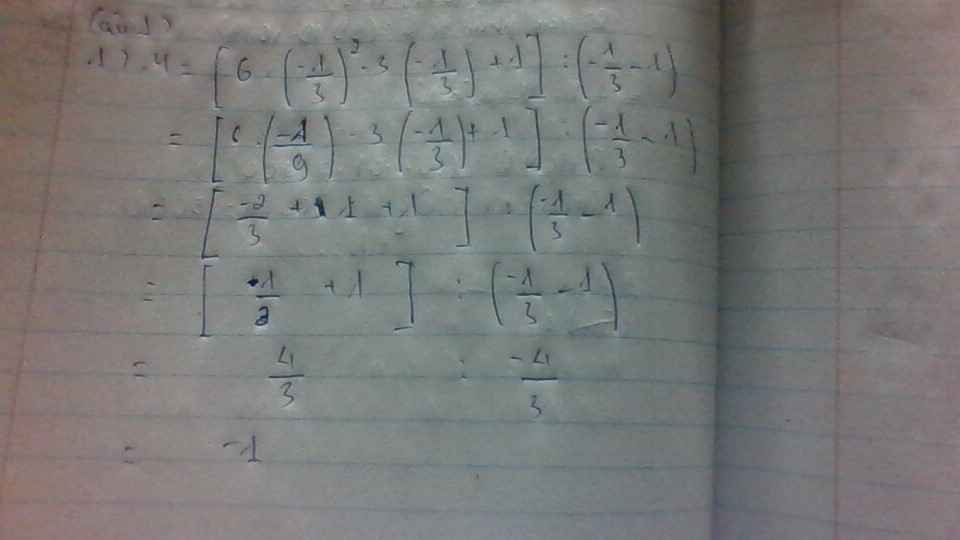 Câu 1)
1) A = [ 6 . (-1/3)² - 3 (-1/3) + 1 ] : (-1/3 - 1)
= [ 6 . (-1/9) - 3 (-1/3) + 1 ] : (-1/3 - 1)
= [ -2/3 + 1 + 1 ] : (-1/3 - 1)
= [ -1/2 + 1 ] : (-1/3 - 1)
= 4/3 : -4/3
= -1